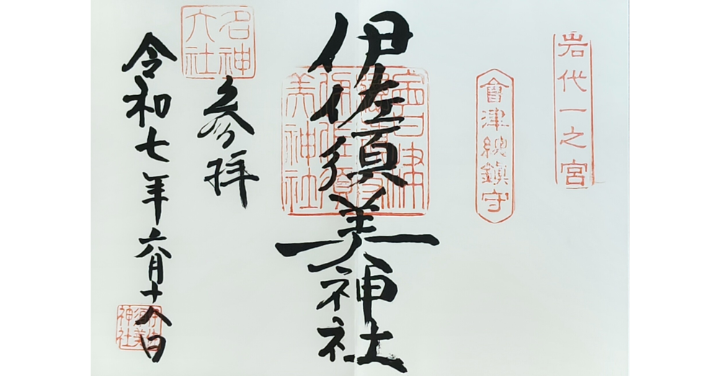 岩代一之宮
會津総鎮守
伊佐須美神社
参拝
名神大社
令和七年六月十八日